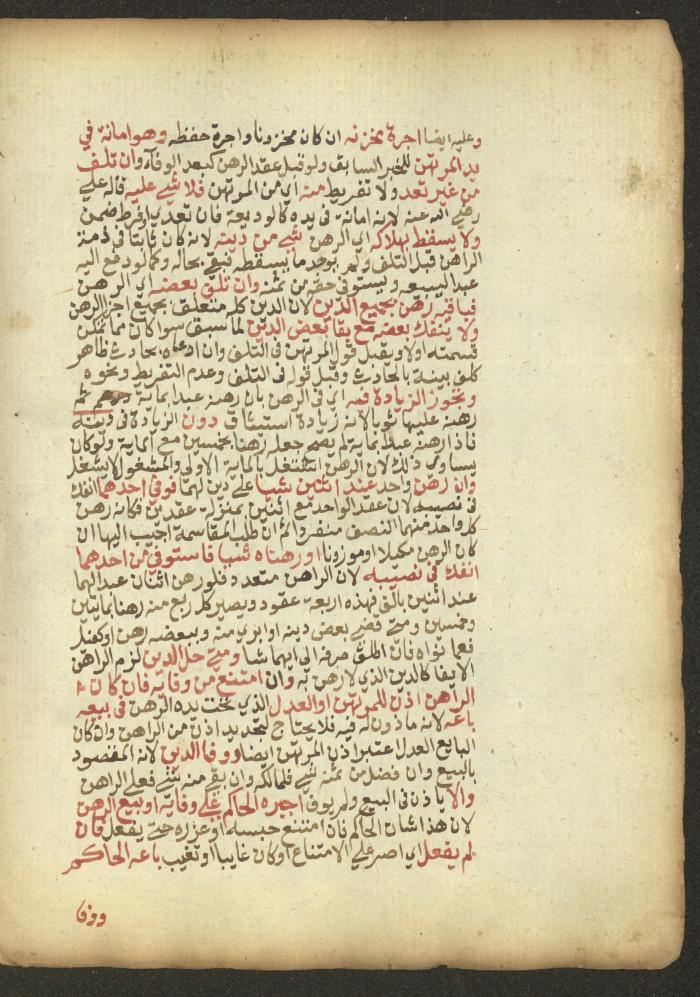 وعليه ايضا اجرة مخزنه ان كان مخزونا واجرة حفظه وهو امانة في
يد المرتهن للخبر السابق ولو قبل عقد الرهن كبعد الوفاء وان تلف
من غير تعد ولا تفريط منه اي من المرتهن فلا شي عليه قاله علي
رضي الله عنه لانه امانة في يده كالوديعة فان تعدي او فرط ضمن
ولا يسقط بهلاكه اي الرهن شي من دينه لانه كان ثابتا في ذمة
الراهن قبل التلف ولم يوجد ما يسقطه فبقي بحاله وكما لو دفع اليه
عبدا ليبيعه ويستوفي حقه من ثمنه وان تلف بعضه اي الرهن
فباقيه رهن بجميع الدين لان الدين كله متعلق بجميع اجزا الرهن
ولا ينفك بعضه مع بقا بعض الدين لما سبق سوا كان مما تمكن
قسمته او لا ويقبل قول المرتهن في التلف وان ادعاه بحادث ظاهر
كلف بينة بالحادث وقبل قوله في التلف وعدم التفريط ونحوه
وتجوز الزيادة فيه اي في الرهن بان رهنه عبدا بماية ثم
رهنه عليها ثوبا لانه زيادة استيثاق دون الزيادة في دينه
فاذا رهنه عبدا بماية لم يصح جعله رهنا بخمسين مع الماية ولو كان
يساوي ذلك لان الرهن اشتغل بالماية الاولي والمشغول لا يشغل
وان رهن واحد عند اثنين شيا علي دين لهما فوفي احدهما انفك
في نصيبه لان عقد الواحد مع اثنين بمنزلة عقدين فكانه رهن
كل واحد منهما النصف منفردا ثم ان طلب المقاسمة اجيب اليها ان
كان الرهن مكيلا او موزونا او رهناه شيا فاستوفي من احدهما
انفك في نصيبه لان الراهن متعدد فلو رهن اثنان عبدا لهما
عند اثنين بالف فهذه اربعة عقود ويصير كل ربع منه رهنا بمايتين
وخمسين ومتي قضي بعض دينه او ابري منه وببعضه رهن او كفيل
فعما نواه فان اطلق صرفه الي ايهما شا ومتي حل الدين لزم الراهن
الايفا كالدين الذي لا رهن به وان امتنع من وفايه فان كان
الراهن اذن للمرتهن او العدل الذي تحت يده الرهن في بيعه
باعه لانه ماذون له فيه فلا يحتاج لتجديد اذن من الراهن وان كان
البايع العدل اعتبر اذن المرتهن ايضا ووفا الدين لانه المقصود
بالبيع وان فضل من ثمنه شي فلمالكه وان بقي منه شي فعلي الراهن
والا ياذن في البيع ولم يوف اجبره الحاكم علي وفايه او بيع الرهن
لان هذا شان الحاكم فان امتنع حبسه او عزره حتي يفعل فان
لم يفعل اي اصر علي الامتناع او كان غايبا او تغيب باعه الحاكم
ووفا